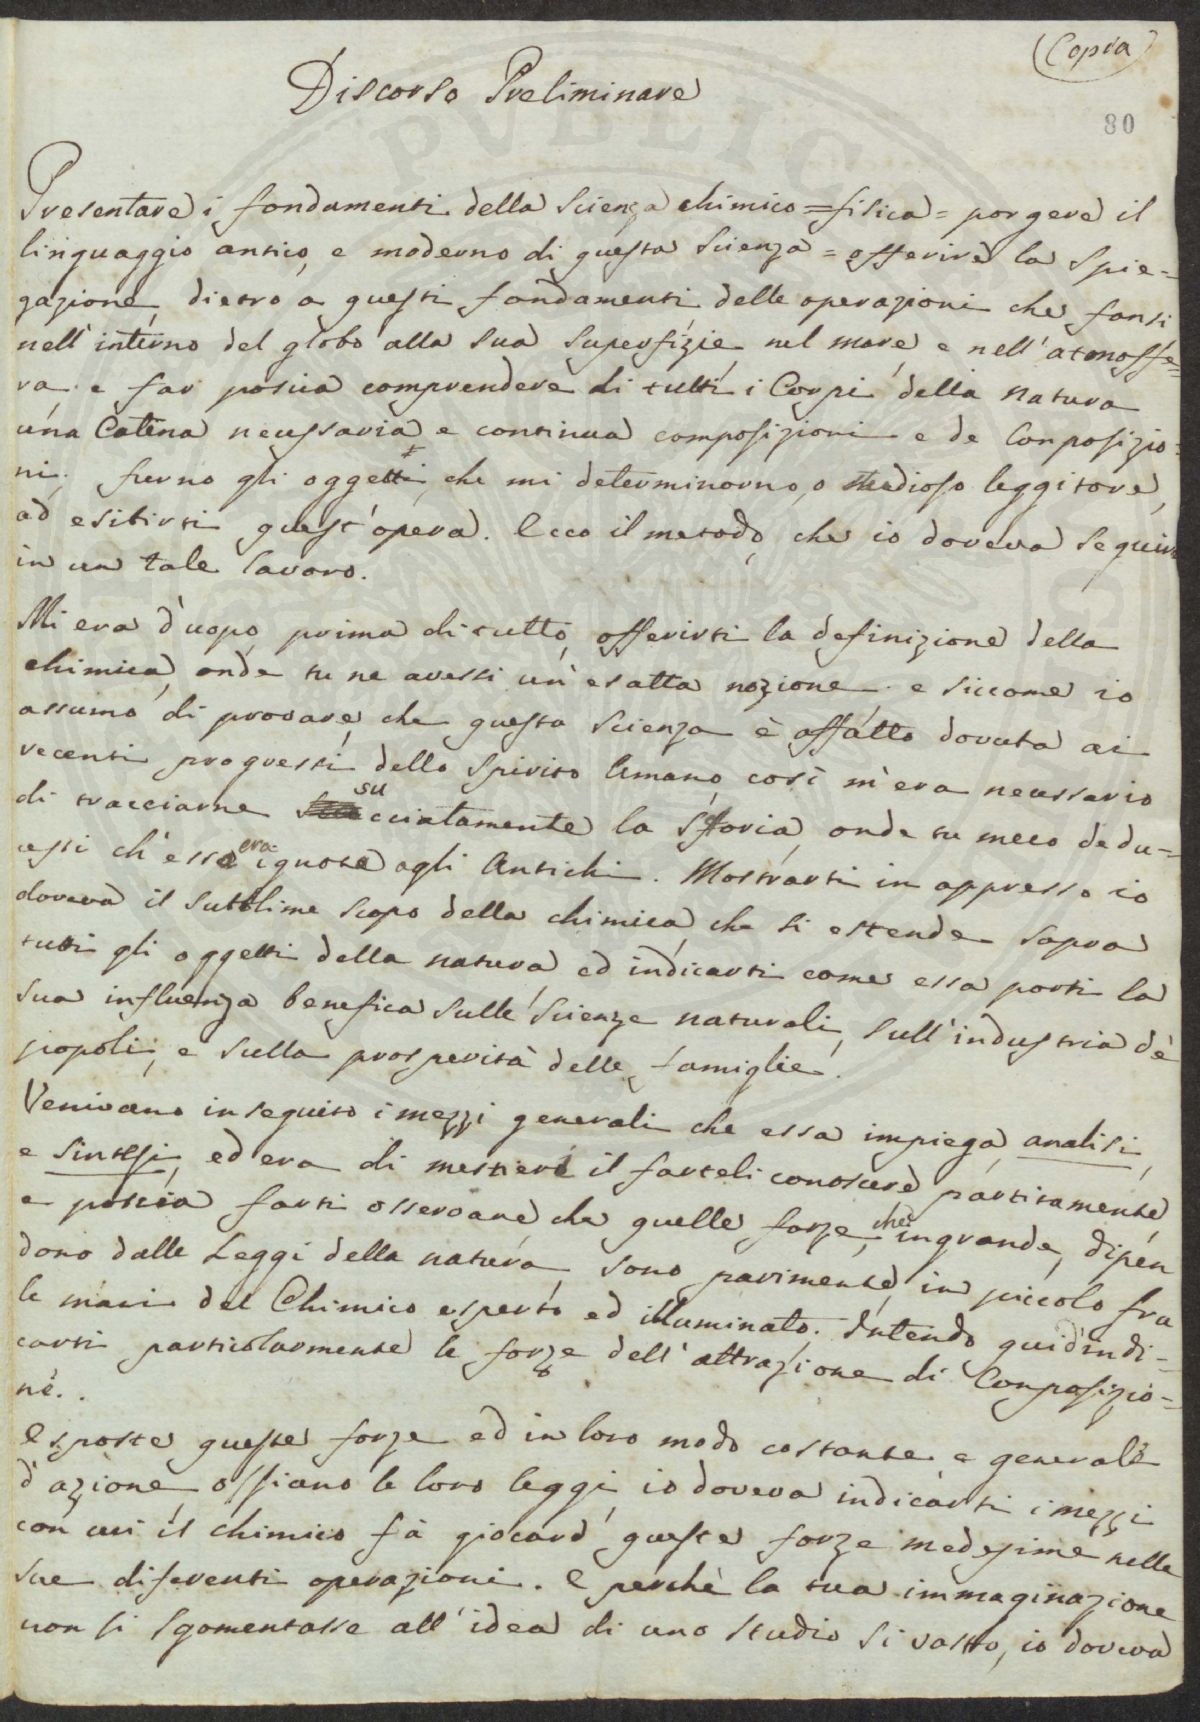 (Copia)
Discorso Preliminare
80
Presentare i fondamenti della Scienza chimico=fisica= porgere il
linguaggio antico, e moderno di questa Scienza = offerire la spie=
gazione, dietro a questi fondamenti delle operazioni che fansi
nell'interno del globo alla sua superfizie, nel mare, e nell'atmosfe=
ra. e far poscia comprendere di tutti i Corpi della natura
una Catena necessaria e continua composizioni e de composizio=
ni; furno gli oggetti, che mi determinorno, o studioso leggitore,
ad esibirti quest'opera. Ecco il metodo, che io doveva seguire
in un tale lavoro.
Mi era d'uopo, prima di tutto, offerirti la definizione della
chimica, onde tu ne avessi un'esatta nozione. e siccome io
assumo di provare, che questa scienza è affatto dovuta ai
recenti progressi dello Spirito Umano, così m'era necessario
di tracciarne succiatamente la Storia, onde tu meco dedu=
cessi ch'essa era ignota agli Antichi. Mostrarti in appresso io
doveva il sublime scopo della chimica, che si estende sopra
tutti gli oggetti della natura, ed indicarti come essa porti la
sua influenza benefica sulle Scienze naturali, sull'industria dè
popoli, e sulla prosperità delle famiglie.
Venivano in seguito i mezzi generali che essa impiega, analisi,
e sintesi, ed era di mestieri il farteli conoscere partitamente
e poscia farti osservare che quelle forze, che in grande, dipen
dono dalle Leggi della natura, sono parimente, in piccolo fra
le mani del Chimico esperto ed illuminato. Intendo quì d'indi=
carti particolarmente le forze dell'attrazione di Composizio=
ne..
Esposte queste forze ed in loro modo costante, e generale
d'azione, ossiano le loro leggi, io doveva indicarti i mezzi
con cui il chimico fà giocare queste forze medesime nelle
sue diferenti operazioni. E perchè la tua immaginazione
non si sgomentasse all'idea di uno studio si vasto, io doveva